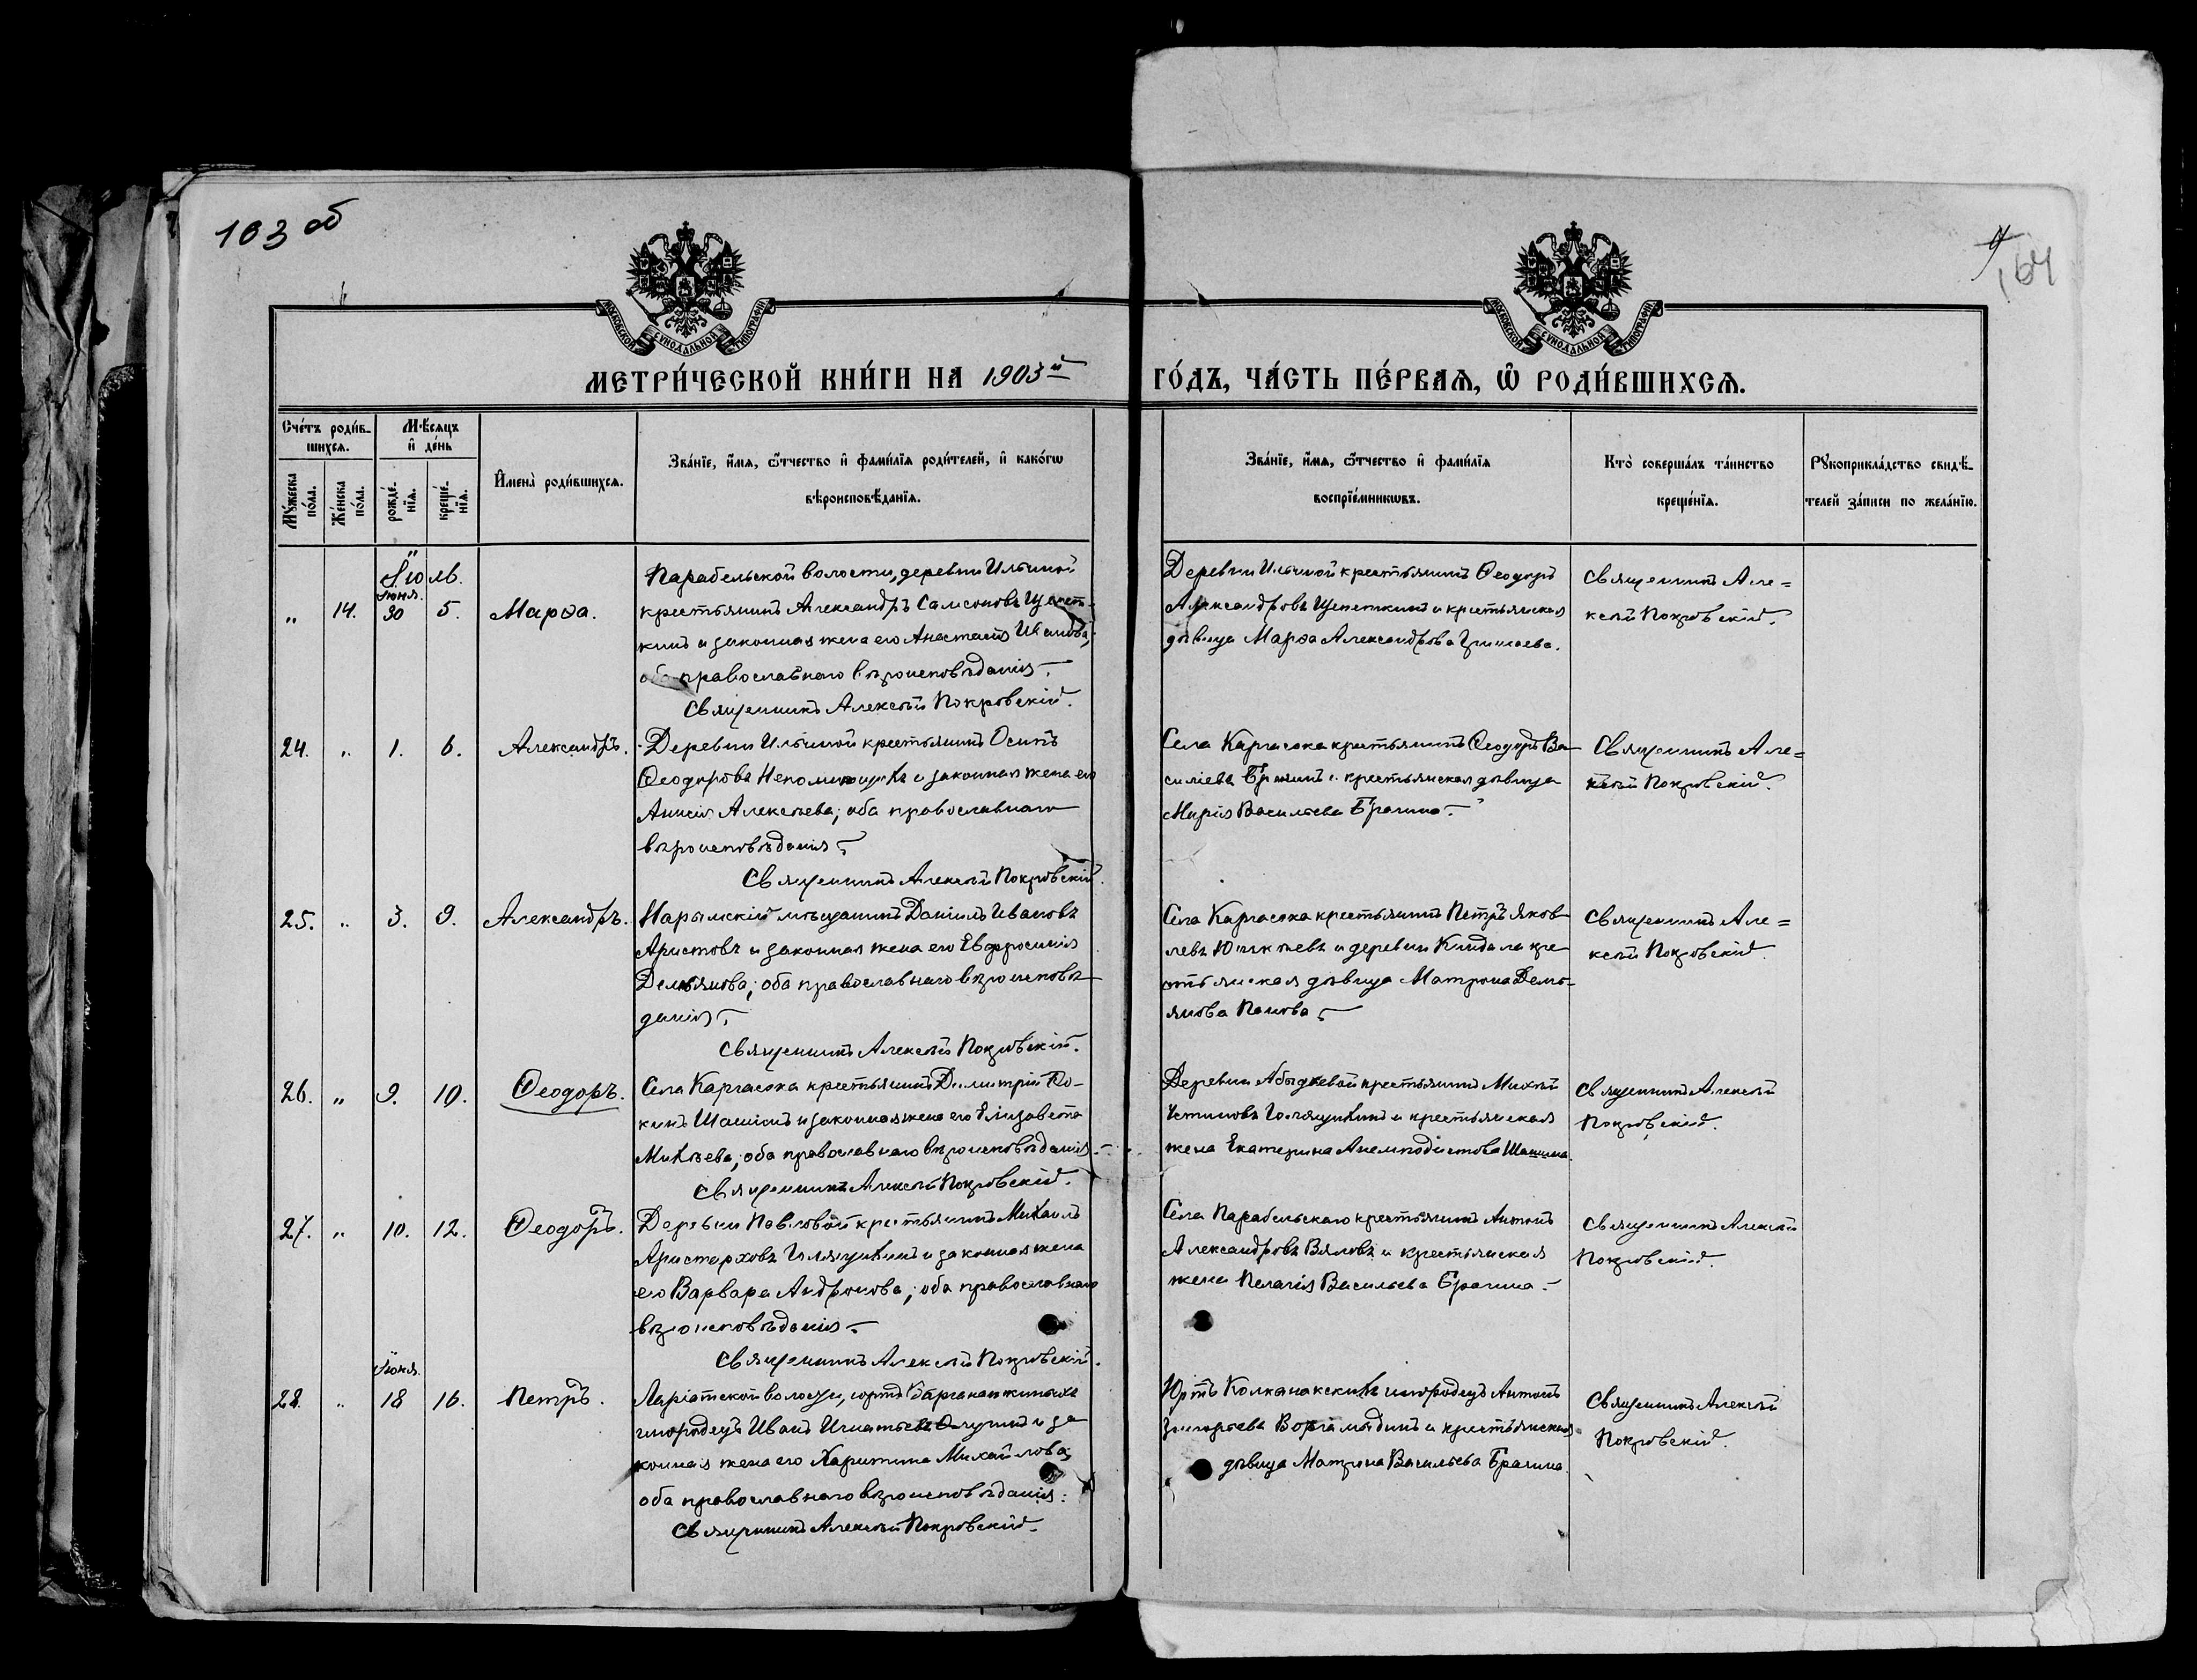 103 об
164
МОСКОВСКОЙ СѴНОДАЛЬНОЙ ТИПОГРАФІИ
МОСКОВСКОЙ СѴНОДАЛЬНОЙ ТИПОГРАФІИ
МЕТРИ́ЧЕСКОЙ КНИ́ГИ НА 1903й ГО́ДЪ, ЧА́СТЬ ПЕ́РВАѦ, Ѽ РОДИ́ВШИХСѦ.
Сче́тъ роди́в-
шихсѧ.
Мѣ́сѧцъ
и҆ де́нь
Мꙋ́жеска по́ла.
Же́нска по́ла.
рожде́-
нїѧ.
креще́-
нїѧ.
И҆мена̀ роди́вшихсѧ.
Зва́нїе, и҆́мѧ, ѻ҆́тчество и҆ фами́лїѧ роди́телей, и҆ како́гѡ
вѣроисповѣ́данїѧ.
Зва́нїе, и҆́мѧ, ѻ҆́тчество и҆ фами́лїѧ
воспрїе́мникѡвъ.
Кто̀ соверша́лъ та́инство
креще́нїѧ.
Рꙋкоприкла́дство свидѣ́-
телей за́писи по жела́нїю.
Іюль.
Іюня.
„ 14. 30 5. Марѳа.
Парабельской волости, деревни Ильиной
крестьянинъ Александръ Самсоновъ Щепет-
кинъ и законная жена его Анастасія
оба православнаго вѣроисповѣданія.
Священникъ Алексѣй Покровскій.
Деревни Ильиной крестьянинъ Ѳеодоръ
Александровъ Щепеткинъ и крестьянская
дѣвица Марѳа Александрова
Священникъ Але=
ксѣй Покровскій.
24. „ 1. 6. Александръ.
Деревни Ильиной крестьянинъ Осипъ
Ѳеодоровъ Непомнющихъ и законная жена его
Анисія Алексѣева; оба православнаго
вѣроисповѣданія.
Священникъ Алексѣй Покровскій.
Села Каргасока крестьянинъ Ѳеодоръ Ва-
силіевъ Брагинъ и крестьянская дѣвица
Марія Васильева Брагина.
Священникъ Але=
ксѣй Покровскій.
25. „ 3. 9. Александръ.
Нарымскій мѣщанинъ Даніилъ Ивановъ
Аристовъ и законная жена его Евфросинія
Демьянова; оба православнаго вѣроисповѣ-
данія.
Священникъ Алексѣй Покровскій.
Села Каргасока крестьянинъ Петръ Яков-
левъ и деревни Киндала кре-
стьянская дѣвица Матрона Демь-
янова Панова.
Священникъ Але=
ксѣй Покровскій.
26. „ 9. 10. Ѳеодоръ.
Села Каргасока крестьянинъ Димитрій Ѳо-
кинъ Шанинъ и законная жена его Елизавета
Михѣева; оба православнаго вѣроисповѣданія.
Священникъ Алексѣй Покровскій.
Деревни крестьянинъ Михѣй
Устиновъ Голещихинъ и крестьянская
жена Екатерина Анемподистова Шанина.
Священникъ Алексѣй
Покровскій.
27. „ 10. 12. Ѳеодоръ.
Деревни Павловой крестьянинъ Михаилъ
Аристарховъ Голещихинъ и законная жена
его Варвара Андронова; оба православнаго
вѣроисповѣданія.
Священникъ Алексѣй Покровскій.
Села Парабельскаго крестьянинъ Антонъ
Александровъ Вяловъ и крестьянская
жена Пелагія Васильева Брагина.
Священникъ Алексѣй
Покровскій.
Іюня.
28. „ 18 16. Петръ.
Ларіатской волости, юртъ
инородецъ Иванъ Игнатьевъ и за-
конная жена его Харитина Михайлова;
оба православнаго вѣроисповѣданія.
Священникъ Алексѣй Покровскій.
Юртъ инородецъ Антонъ
Григорьевъ и крестьянская
дѣвица Матрона Васильева Брагина.
Священникъ Алексѣй
Покровскій.